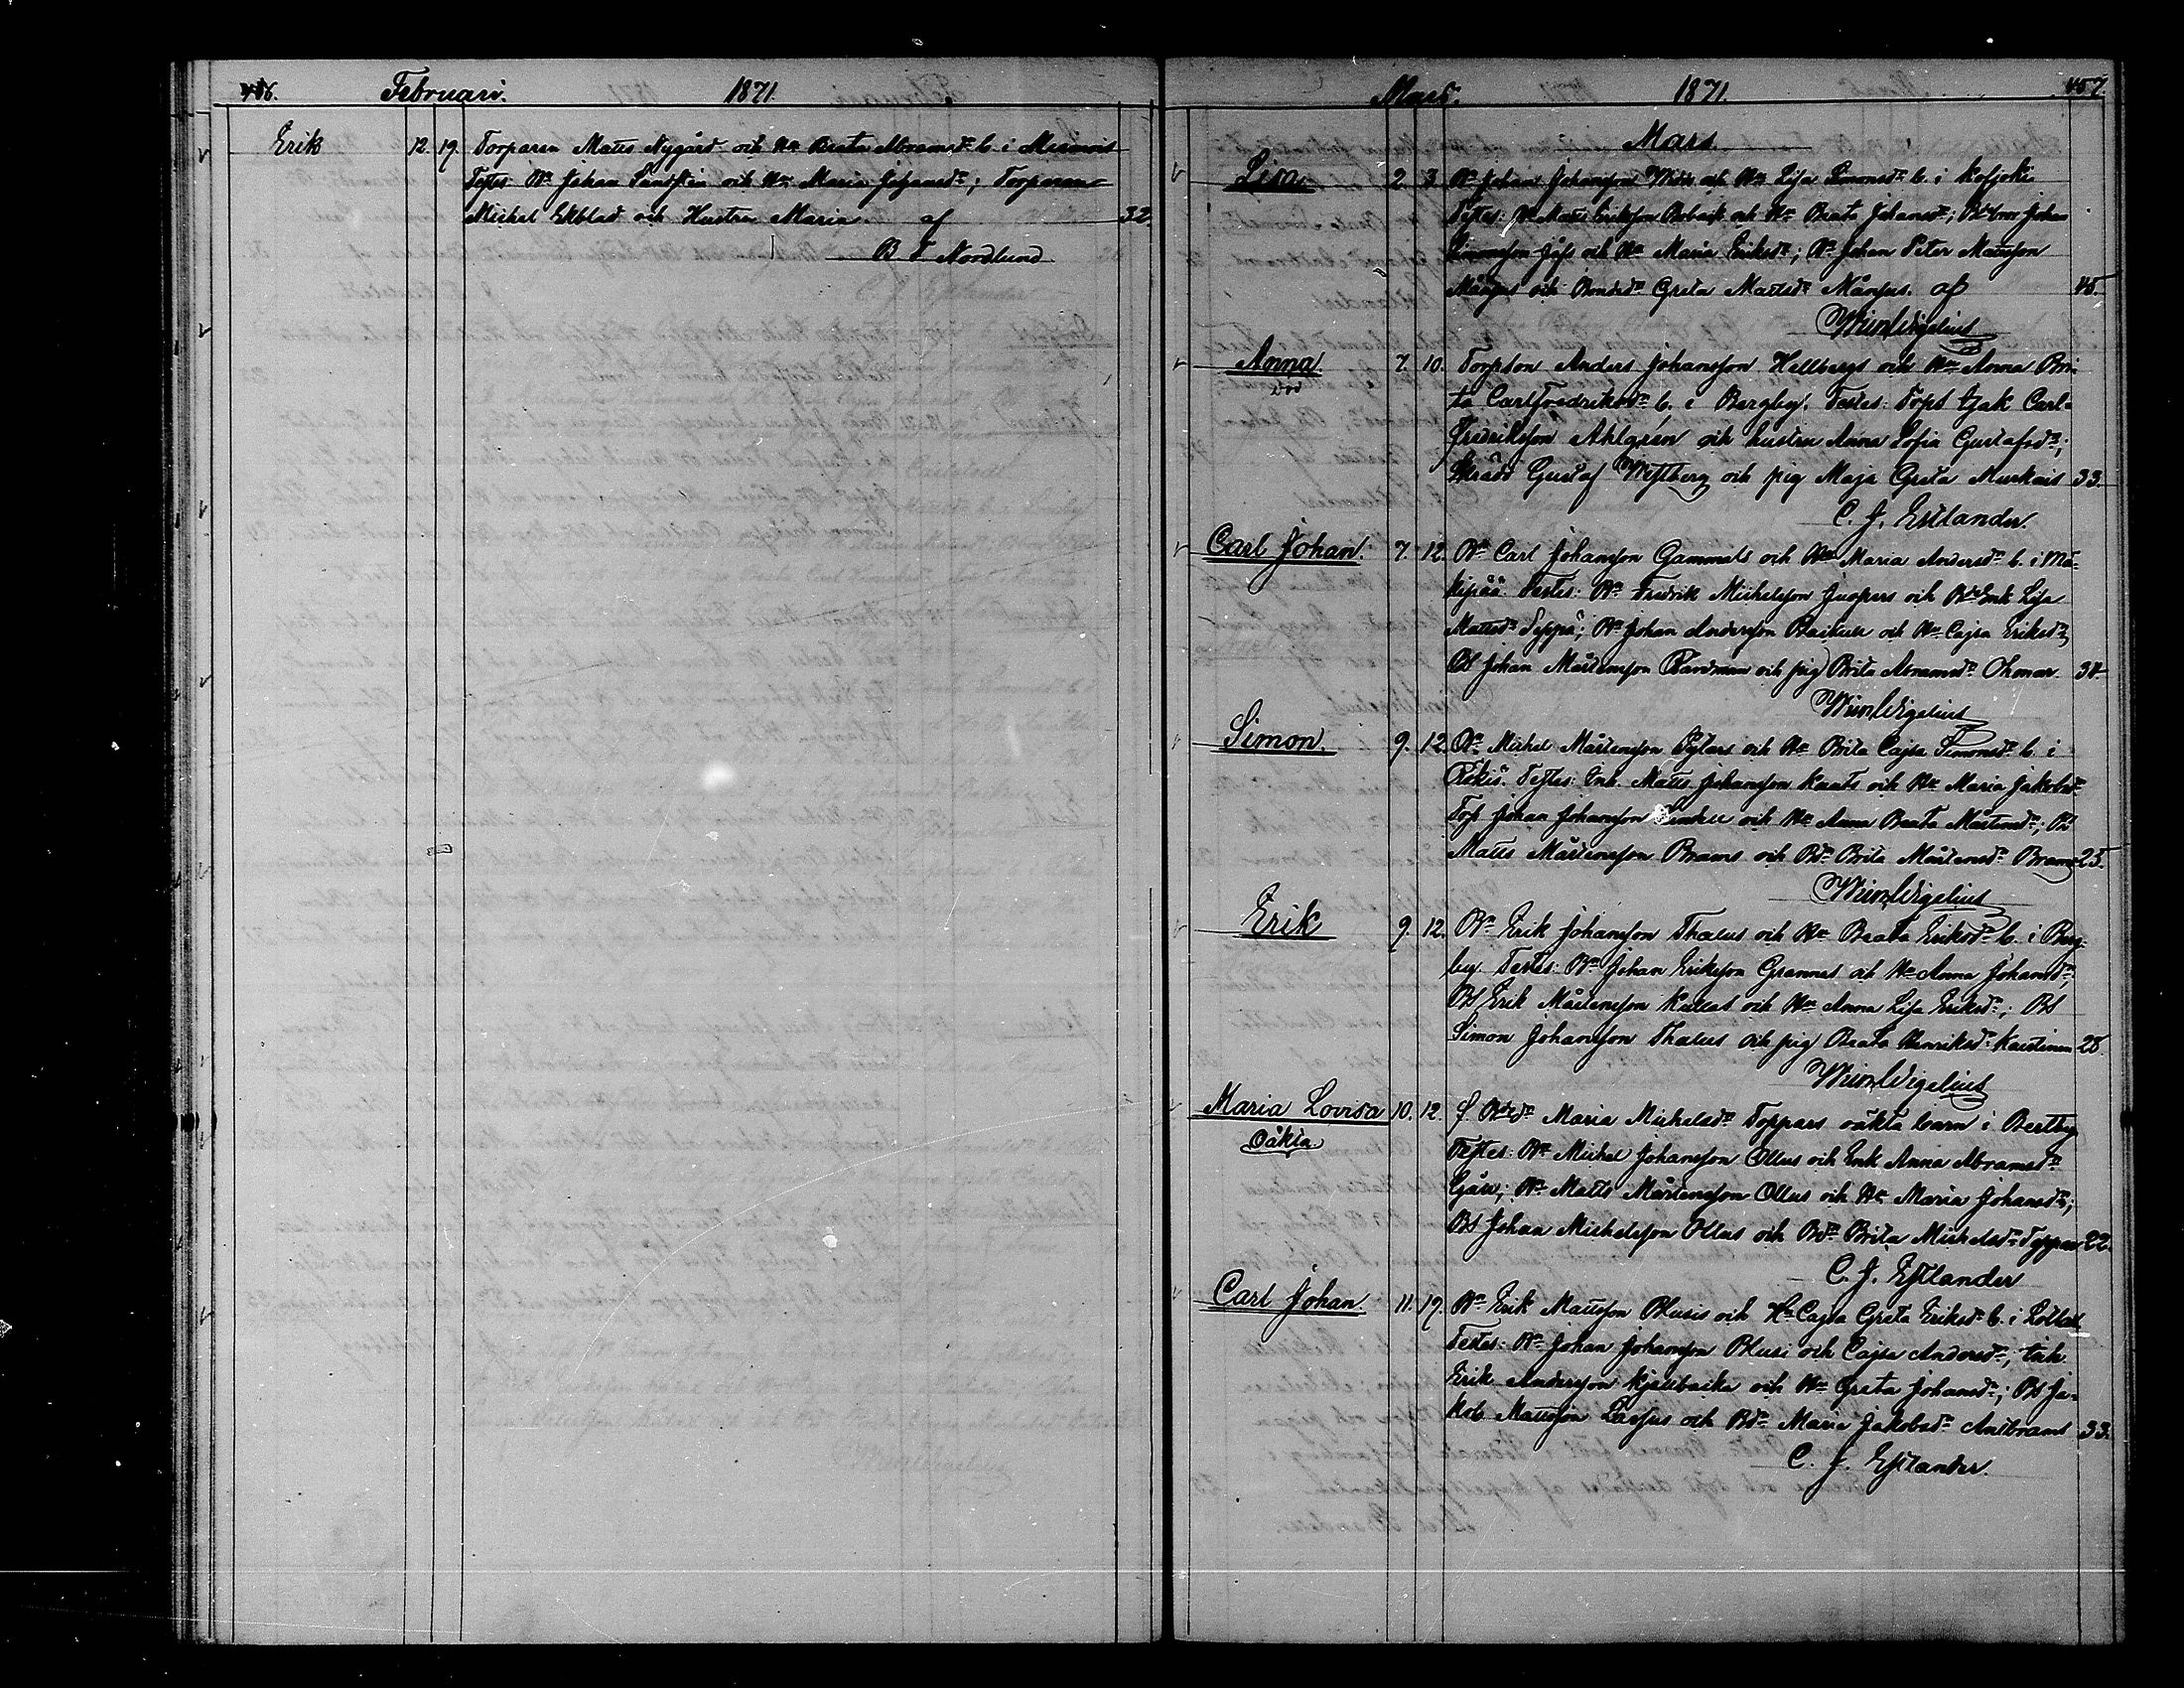 Februari. 1871.
Erik 12. 19. Torparen Matts Nygård och Hu Beata Abramsdr b. i
Testes: Bn Johan Sundsten och Hu Maria Johansdr; Torparen
Michel Ekblad och Hustru Maria af 32.
B F Nordlund
Mars. 1871. 157.
Mars
Lisa 2. 3. Bn Johan Johansson och Hu Lisa Simonsdr b. i
Testes: Bn Matts Eriksson och Hu Beata Johansdr; Johan
Simonsson och Hu Maria Eriksdr; Bn Johan Peter Mattsson
Månsus och Bondedr Greta Mattsdr Månsus. af
Wigelius
Anna 7. 10. Torpson Anders Johansson Hellbergs och Hu Anna Bri-
död
ta Carlfredriksdr b. i Bergby. Testes: Carl
Fredriksson Ahlgrén och hustru Anna Sofia Gustafsdr;
Gustaf Westberg och pig Maja Greta 33.
C. J. Estlander.
Carl Johan. 7. 12. Bn Carl Johansson Gammals och Hu Maria Andersdr b. i Mä-
kipää. Testes: Bn Fredrik Michelsson Juopers och Lisa
Mattsdr Seppä; Bn Johan Andersson och Hu Cajsa Eriksdr;
Bs Johan Mårtensson och pig Brita Abramsdr 34
Wigelius
Simon. 9. 12. Bn Michel Mårtensson och Hu Brita Cajsa Simonsdr b. i
Testes: Inh. Matts Johansson Knuts och Hu Maria Jakobsdr
Johan Johansson och Hu Anna Beata Mårtensdr; Bs
Matts Mårtensson Brams och Bdr Brita Mårtensdr Brams 25.
Wigelius
Erik 9. 12. Bn Erik Johansson Thalus och Hu Beata Eriksdr b. i Berg-
by. Testes: Bn Johan Eriksson Grannas och Hu Anna Johansdr;
Bs Erik Mårtensson Kullas och Hu Anna Lisa Eriksdr; Bs
Simon Johansson Thalus och pig Beata Henriksdr 28.
Wigelius
Maria Lovisa 10. 12. f Maria Michelsdr Toppars oäkta barn i Bertby
Oäkta
Testes: Bn Michel Johansson Ollus och Enk Anna Abramsdr
Bn Matts Mårtensson Ollus och Hu Maria Johansdr;
Bs Johan Michelsson Ollus och Bdr Brita Michelsdr Toppar 22.
C. J. Estlander
Carl Johan. 11. 19. Bn Erik Mattsson Blusis och Hu Cajsa Greta Eriksdr b. i
Testes: Bn Johan Johansson Blusi och Cajsa Andersdr; inh
Erik Andersson och Hu Greta Johansdr; Bs Ja-
kob Mattsson Lassus och Bdr Maria Jakobsdr Antbrams 33.
C. J. Estlander.